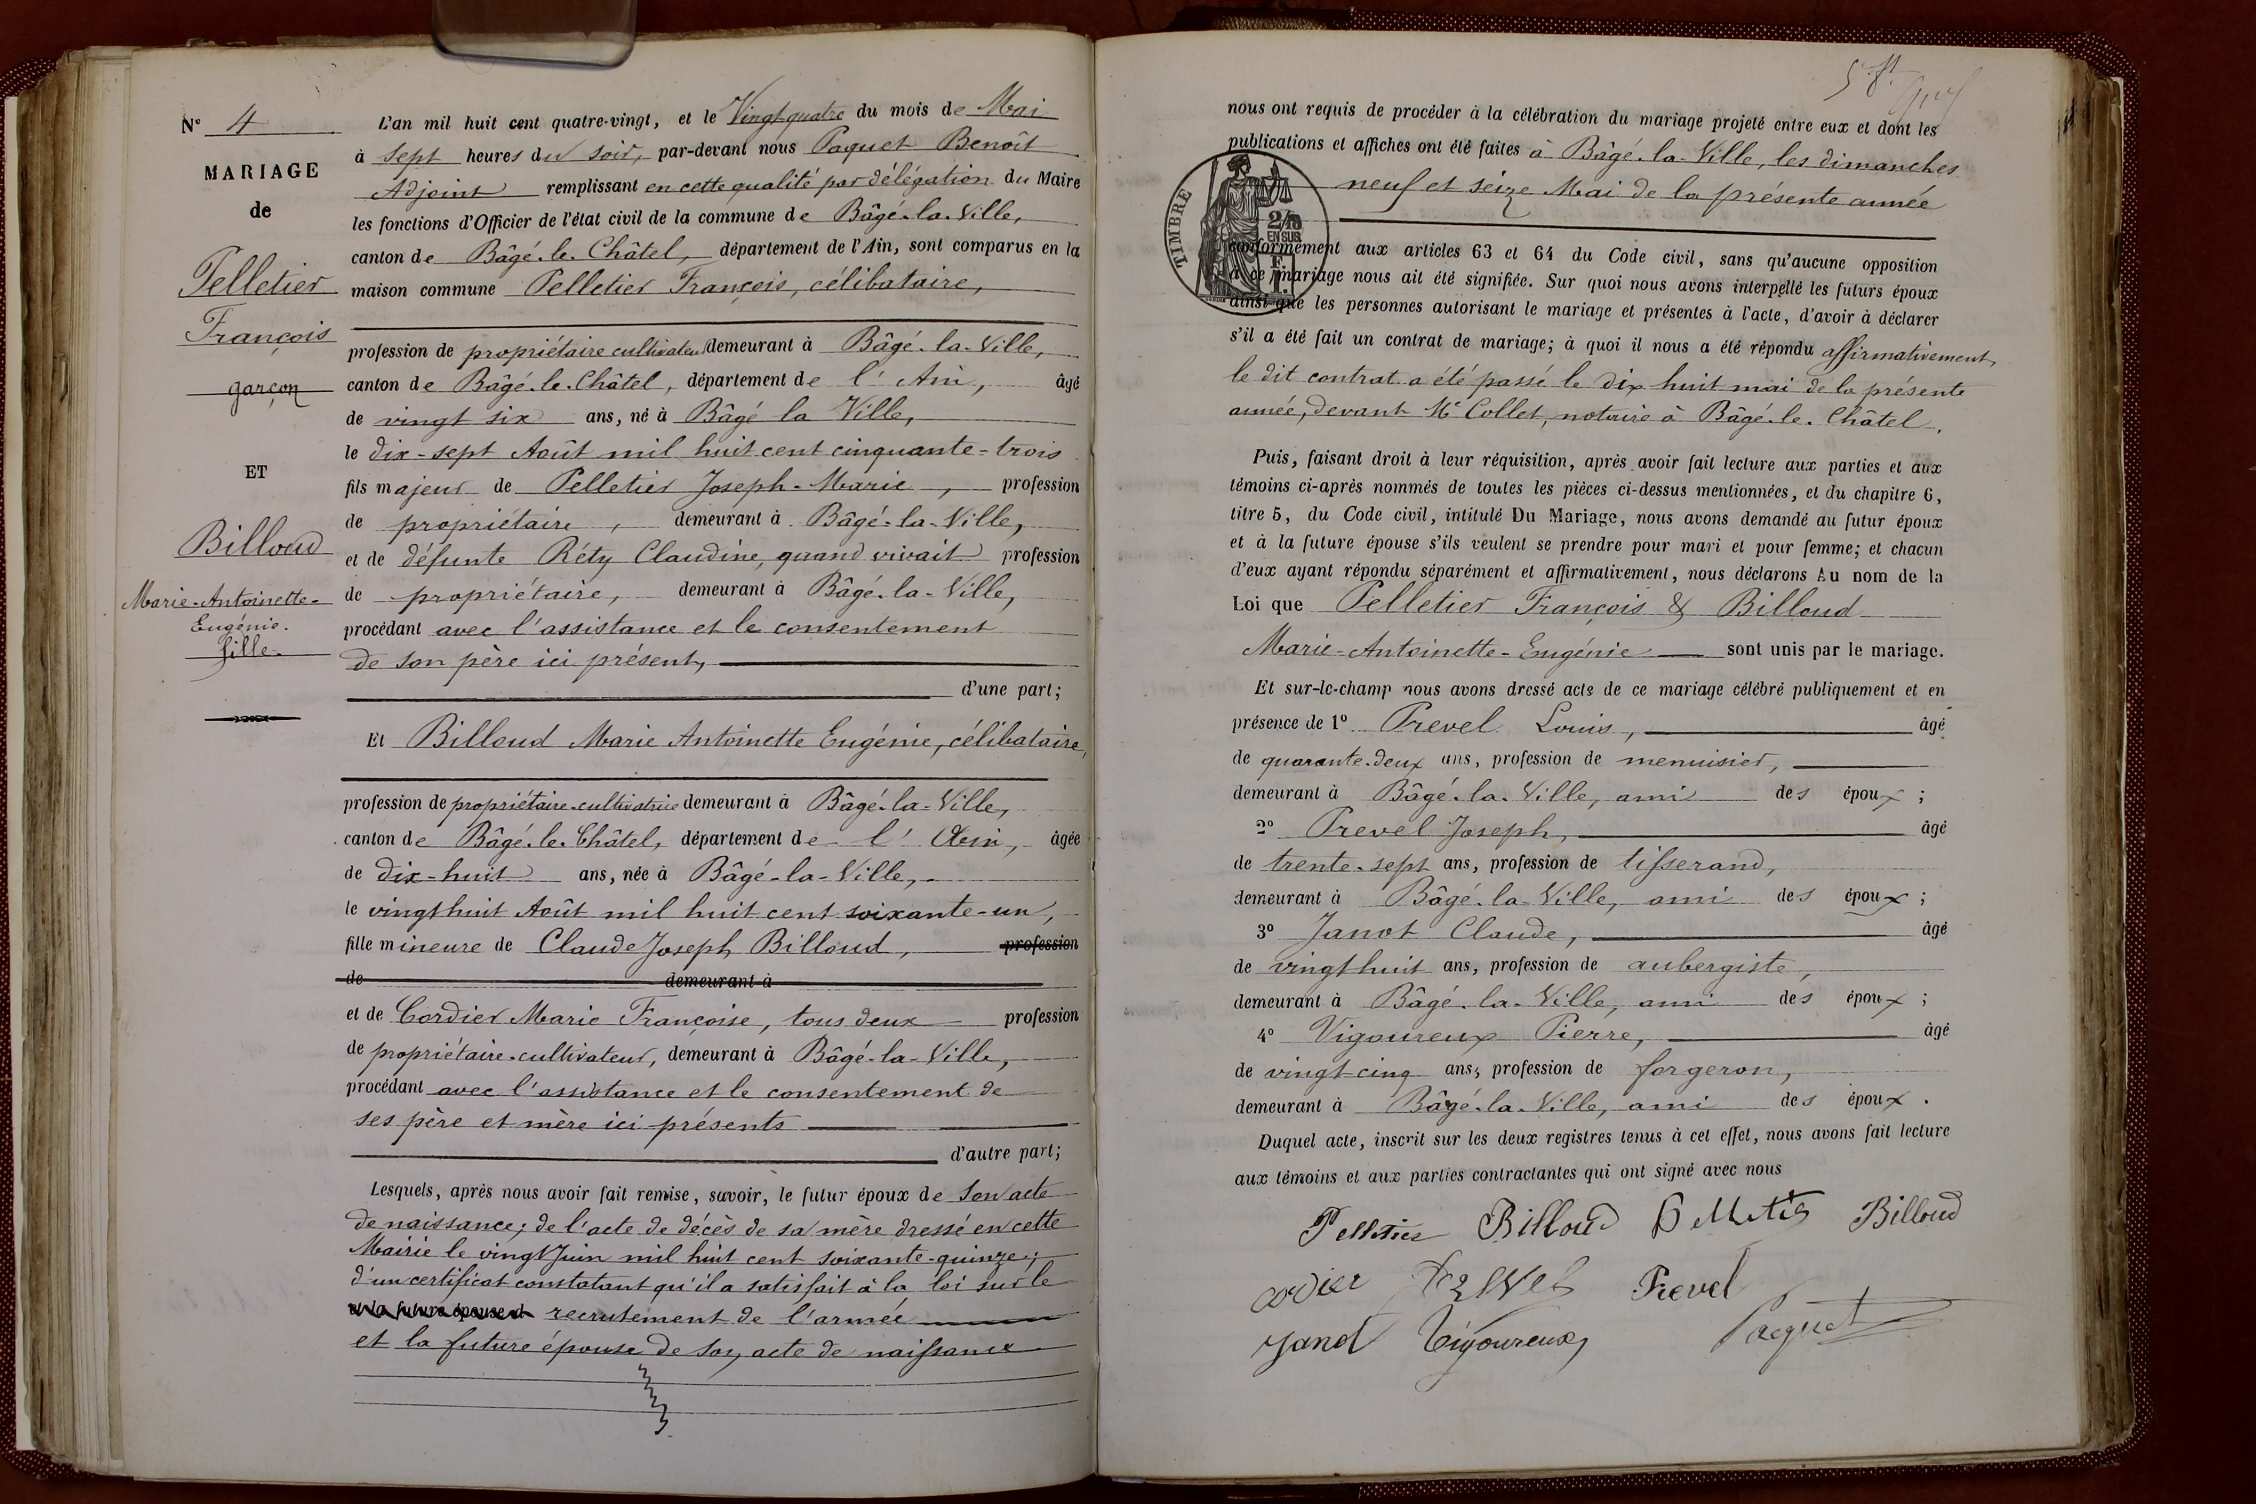 N° 4
MARIAGE
de
Pelletier
François
garçon
ET
Billoud
Marie-Antoinette-
Eugénie.
fille.
L'an mil huit cent quatre-vingt, et le Vingt quatre du mois de Mai
à sept heures du soir, par-devant nous Paquet Benoît
Adjoint remplissant en cette qualité par délégation du Maire
les fonctions d'Officier de l'état civil de la commune de Bâgé-la-Ville,
canton de Bâgé-le-Châtel, département de l'Ain, sont comparus en la
maison commune Pelletier François, célibataire,
profession de propriétaire cultivateur demeurant à Bâgé-la-Ville,
canton de Bâgé-le-Châtel, département de l'Ain, âgé
de vingt six ans, né à Bâgé la Ville,
le dix-sept Août mil huit cent cinquante-trois
fils majeur de Pelletier Joseph-Marie, profession
de propriétaire, demeurant à Bâgé-la-Ville,
et de défunte Réty Claudine, quand vivait profession
de propriétaire, demeurant à Bâgé-la-Ville,
procédant avec l'assistance et le consentement
de son père ici présent,
d'une part;
Et Billoud Marie Antoinette Eugénie, célibataire,
profession de propriétaire-cultivatrice demeurant à Bâgé-la-Ville,
canton de Bâgé-le-Châtel, département de l'Ain, âgée
de dix-huit ans, née à Bâgé-la-Ville,
le vingt huit Août mil huit cent soixante-un,
fille mineure de Claude Joseph Billoud, profession
de demeurant à
et de Cordier Marie Françoise, tous deux profession
de propriétaire-cultivateur, demeurant à Bâgé-la-Ville,
procédant avec l'assistance et le consentement de
ses père et mère ici présents
d'autre part;
Lesquels, après nous avoir fait remise, savoir, le futur époux de son acte
de naissance; de l'acte de décès de sa mère dressé en cette
Mairie le vingt Juin mil huit cent soixante-quinze;
d'un certificat constatant qu'il a satisfait à la loi sur le
et la future épouse d recrutement de l'armée
et la future épouse de son acte de naissance
nous ont requis de procéder à la célébration du mariage projeté entre eux et dont les
publications et affiches ont été faites à Bâgé-la-Ville, les dimanches
neuf et seize Mai de la présente année
TIMBRE
2/10
EN SUS
conformément aux articles 63 et 64 du Code civil, sans qu'aucune opposition
à ce mariage nous ait été signifiée. Sur quoi nous avons interpellé les futurs époux
ainsi que les personnes autorisant le mariage et présentes à l'acte, d'avoir à déclarer
s'il a été fait un contrat de mariage; à quoi il nous a été répondu affirmativement,
le dit contrat a été passé le dix huit mai de la présente
année, devant Me Collet, notaire à Bâgé-le-Châtel.
Puis, faisant droit à leur réquisition, après avoir fait lecture aux parties et aux
témoins ci-après nommés de toutes les pièces ci-dessus mentionnées, et du chapitre 6,
titre 5, du Code civil, intitulé Du Mariage, nous avons demandé au futur époux
et à la future épouse s'ils veulent se prendre pour mari et pour femme; et chacun
d'eux ayant répondu séparément et affirmativement, nous déclarons Au nom de la
Loi que Pelletier François & Billoud
Marie-Antoinette-Eugénie sont unis par le mariage.
Et sur-le-champ nous avons dressé acte de ce mariage célébré publiquement et en
présence de 1° Prevel Louis, âgé
de quarante-deux ans, profession de menuisier,
demeurant à Bâgé-la-Ville, ami des époux;
2° Prevel Joseph, âgé
de trente-sept ans, profession de tisserand,
demeurant à Bâgé-la-Ville, ami des époux;
3° Janot Claude, âgé
de vingt huit ans, profession de aubergiste,
demeurant à Bâgé-la-Ville, ami des époux;
4° Vigoureux Pierre, âgé
de vingt-cinq ans, profession de forgeron,
demeurant à Bâgé-la-Ville, ami des époux.
Duquel acte, inscrit sur les deux registres tenus à cet effet, nous avons fait lecture
aux témoins et aux parties contractantes qui ont signé avec nous
Pelletier Billoud Pelletier Billoud
cordier Prevel Prevel
Janot Vigoureux Paquet